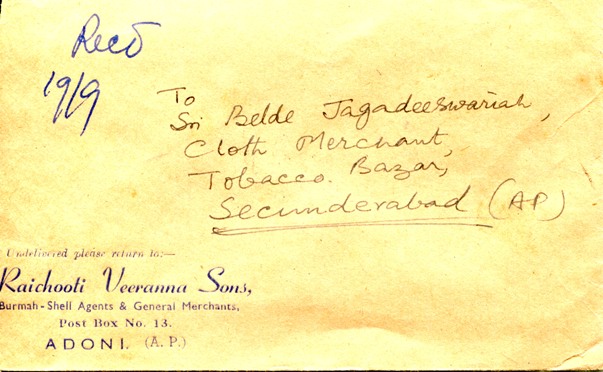 Recd
19/9
To
Sri Belde Jagadeeswariah,
Cloth Merchant,
Tobacco. Bazar,
Secunderabad (AP)
Undelivered please return to:—
Raichooti Veeranna Sons,
Burmah-Shell Agents & General Merchants,
Post Box No. 13.
ADONI. (A. P.)